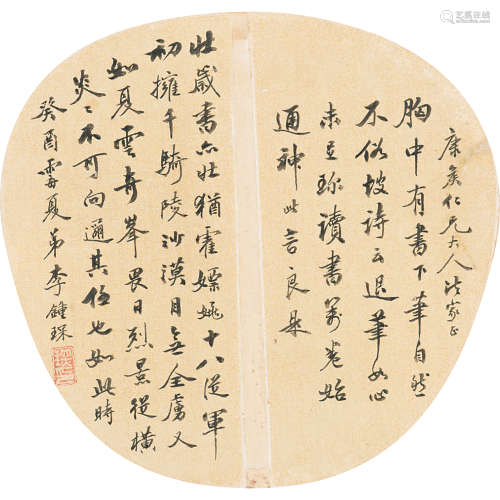 康矦仁兄大人法家正
胸中有書下筆自然
不俗坡詩云退筆如山
未足珍讀書萬卷始
通神此言良是
壯歲書亦壯猶霍嫖姚十八從軍
初擁千騎陵沙漠目無全虜又
如夏雲奇峯畏日烈景從橫
炎〻不可向邇其任也如此時
癸酉夏弟李鍾琛